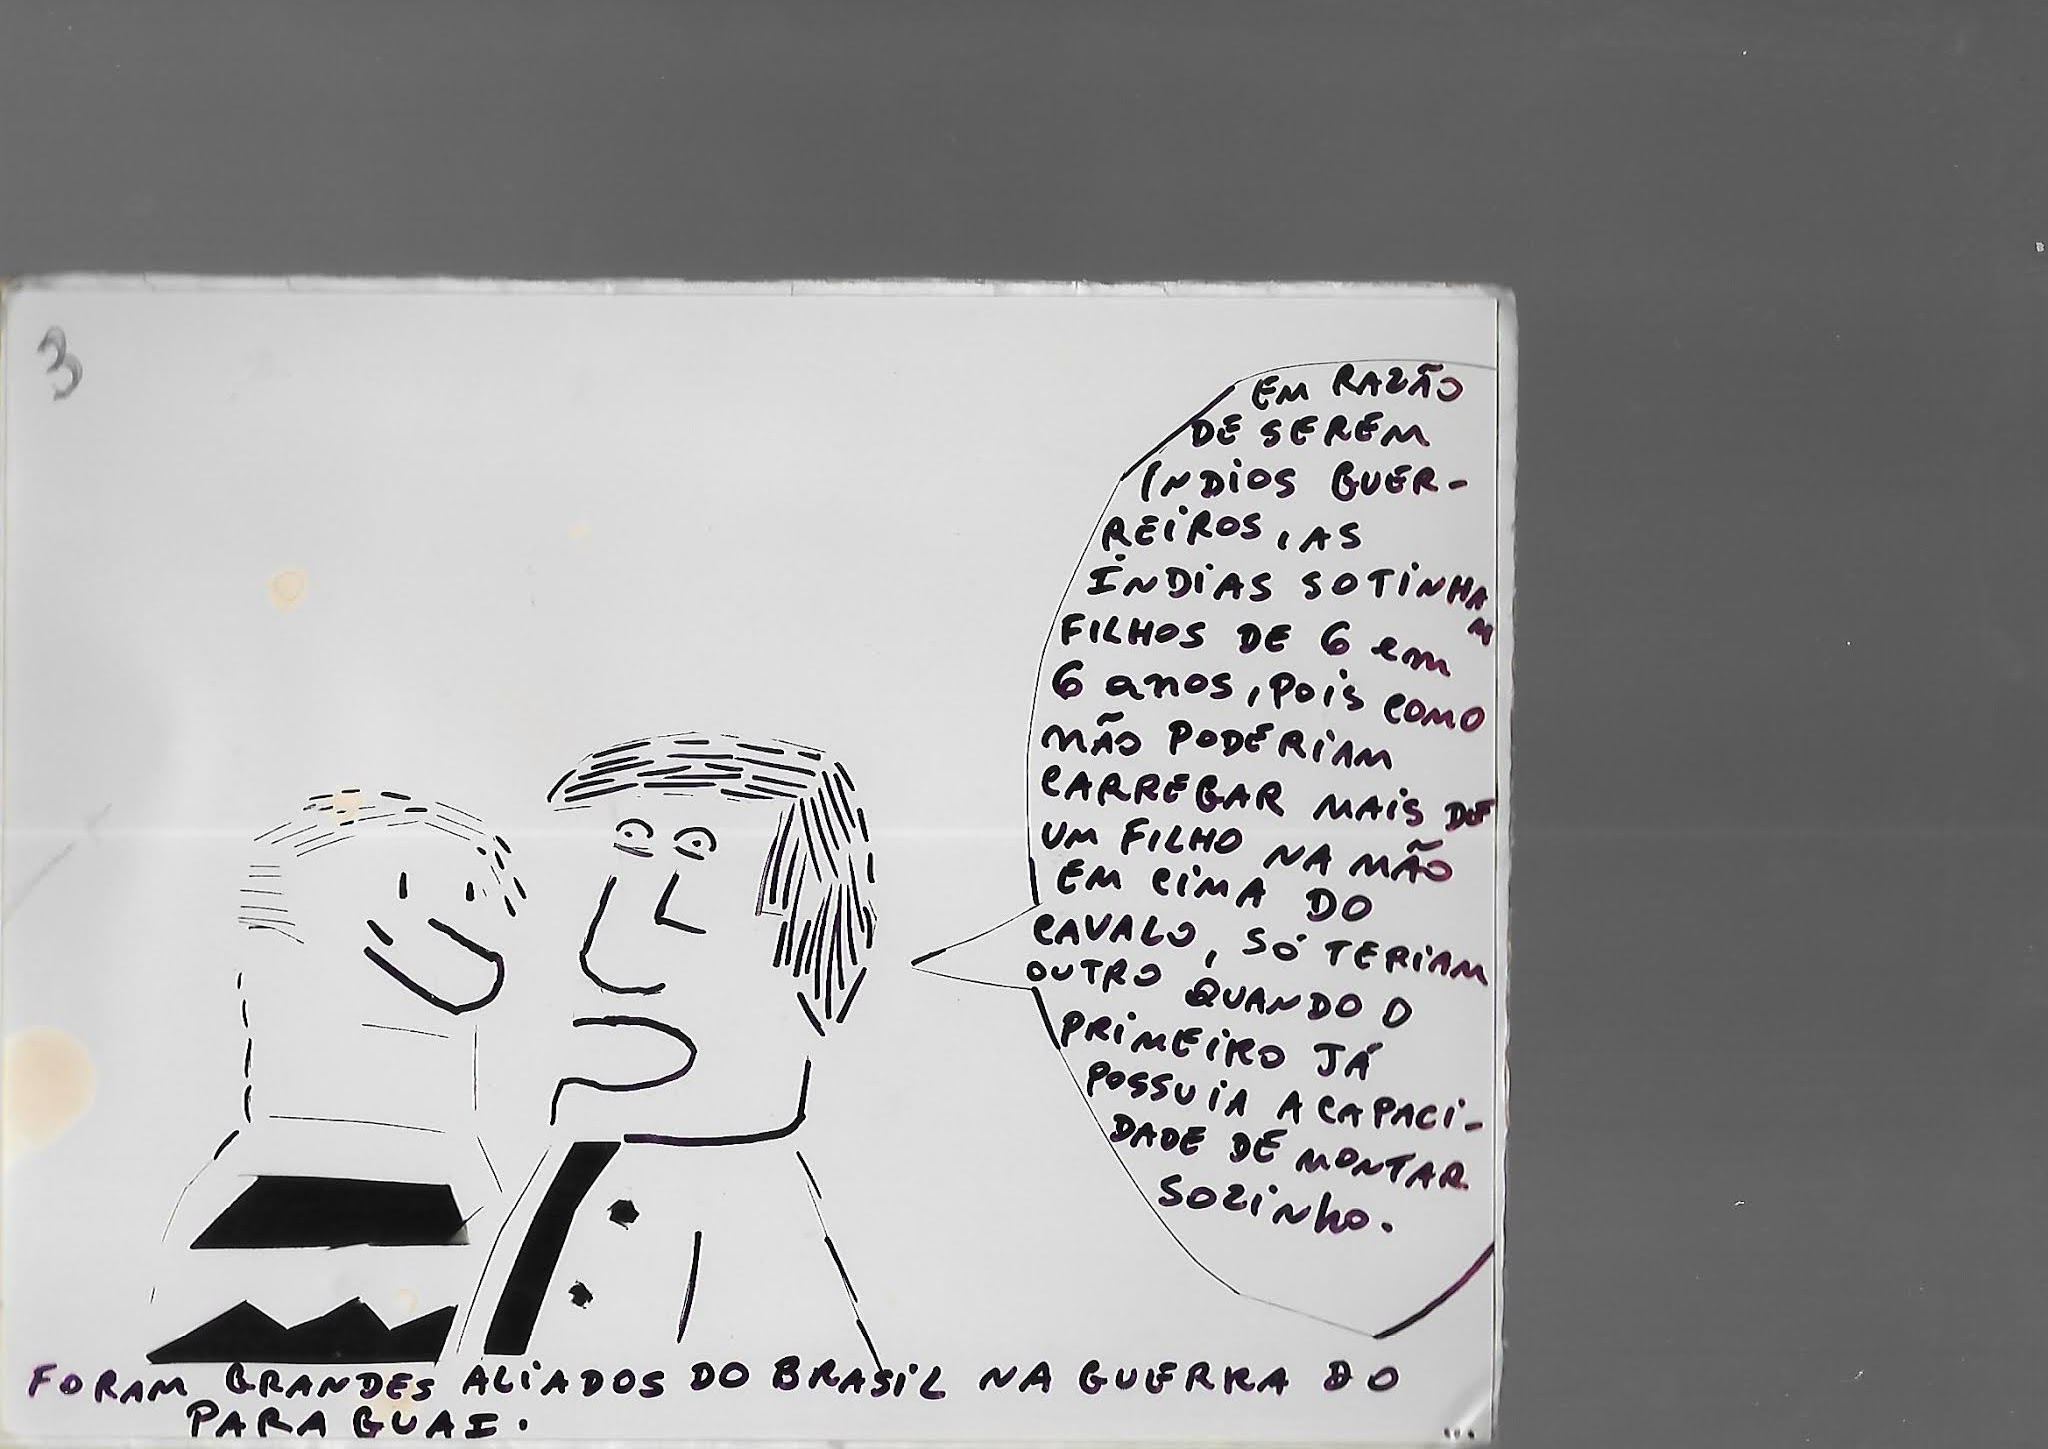 3
EM RAZÃO
DE SEREM
ÍNDIOS GUER-
REIROS, AS
ÍNDIAS SÓ TINHAM
FILHOS DE 6 em
6 anos, pois como
NÃO PODERIAM
CARREGAR MAIS DE
UM FILHO NA MÃO
EM CIMA DO
CAVALO, SÓ TERIAM
OUTRO QUANDO O
PRIMEIRO JÁ
POSSUIA A CAPACI-
DADE DE MONTAR
SOZINHO.
FORAM GRANDES ALIADOS DO BRASIL NA GUERRA DO
PARAGUAI.
...